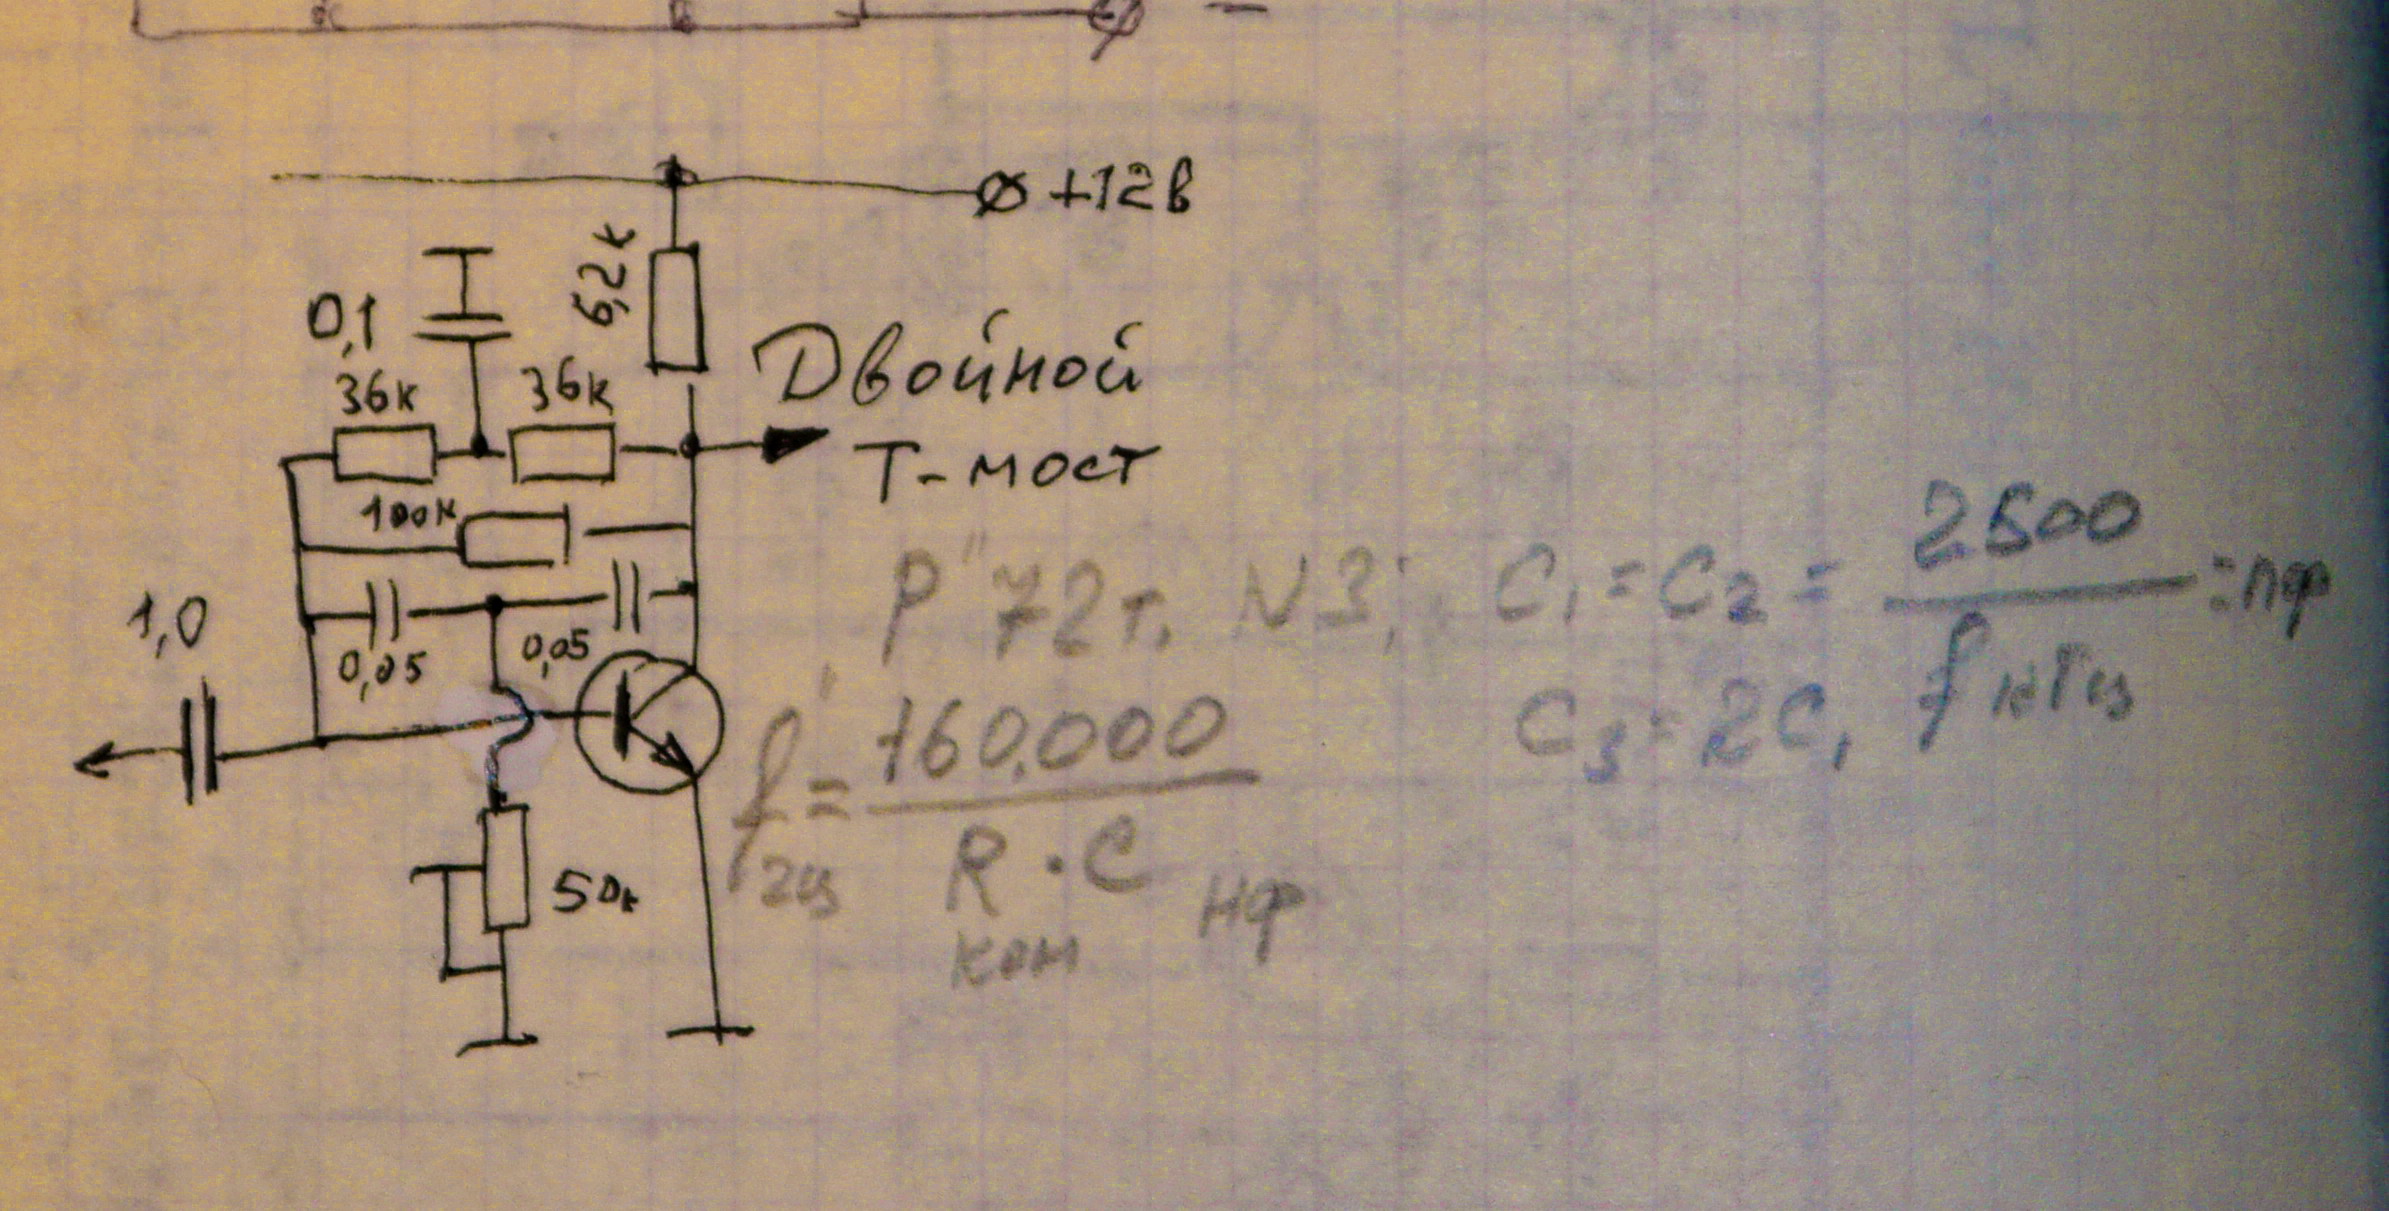 +12в
6,2к
0,1
36к 36к
Двойной
Т-мост
100к
1,0
0,05 0,05
Р"72г. N3; C₁=C₂= 2500 / f кГц =пф
C₃=2C₁
f гц = 160.000 / R · C
ком нф
50к